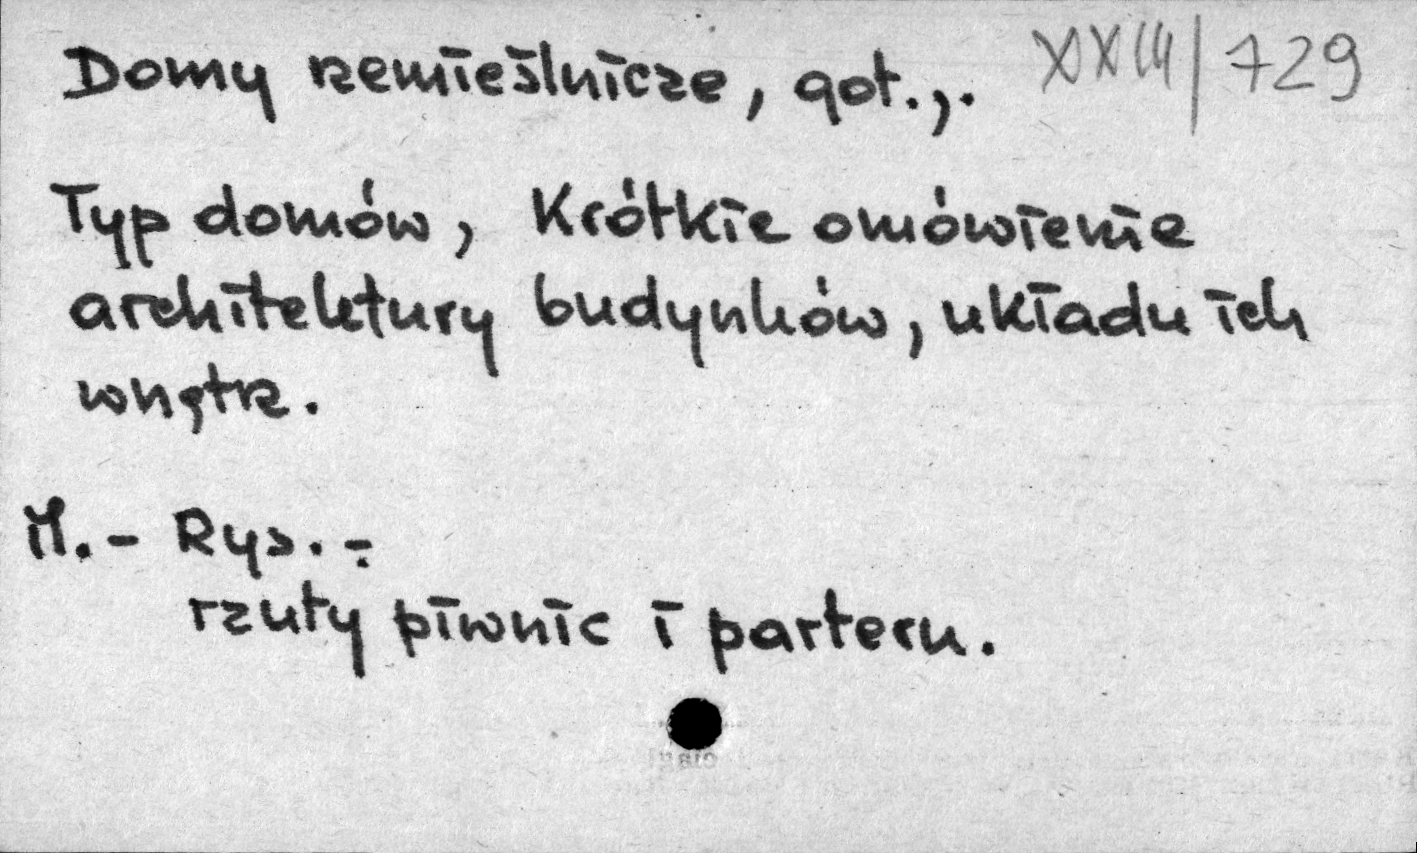 Domy rzemieślnicze, got.,. XXIII/729
Typ domów, Krótkie omówienie
architektury budynków, układu ich
wnętrz.
M.- Rys.-
rzuty piwnic i parteru.